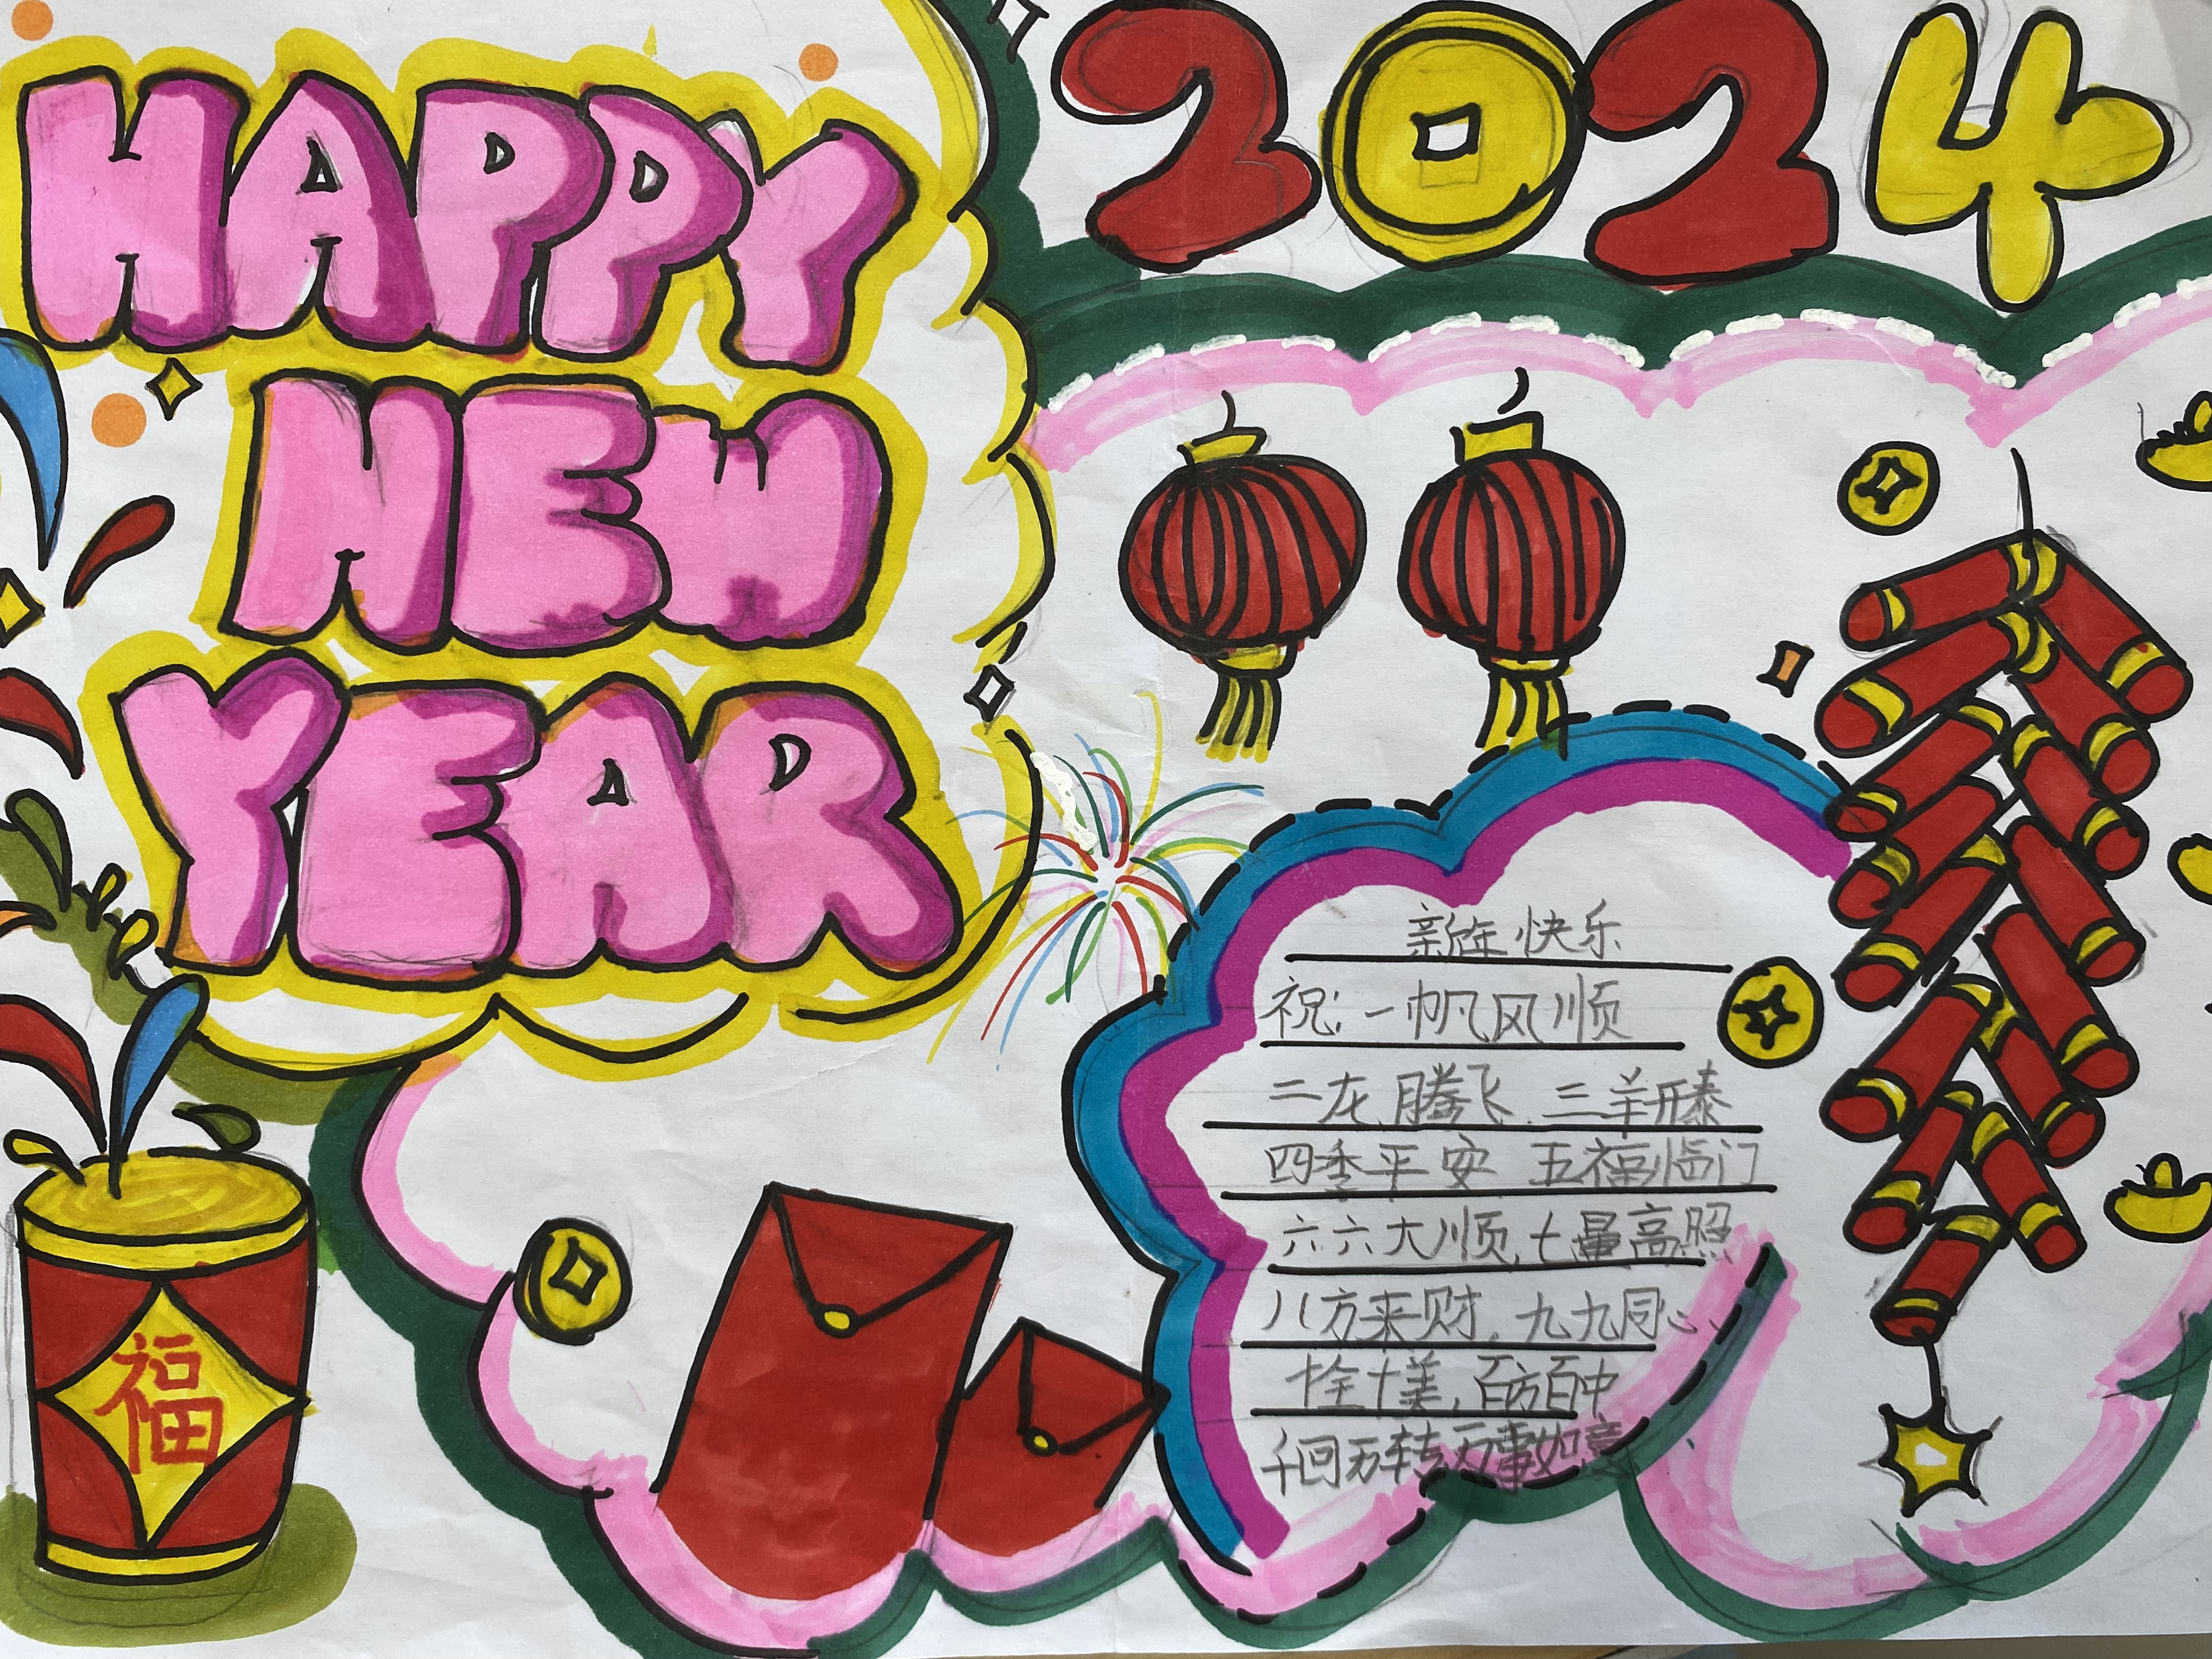 HAPPY
NEW
YEAR
2024
新年快乐
祝:一帆风顺
二龙腾飞.三羊开泰
四季平安 五福临门
六六大顺,七星高照
八方来财.九九同心、
十全十美,百方百中
千回万转万事如意
福